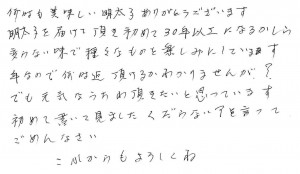 何時も美味しい明太子ありがとうございます
明太子を届けて頂き初めて30年以上になるかしら
変らない味で種々なものを楽しみにしています
年なので何時迄頂けるかわかりませんが??
でも元気なうちわ頂きたいと思っています
初めて書いて見ました くだらない事を言って
ごめんなさい
これからもよろしくね